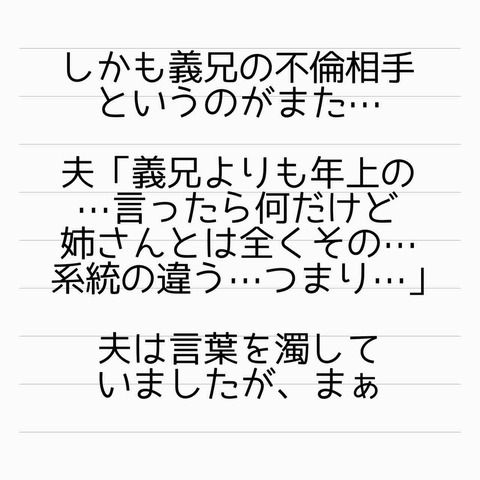 しかも義兄の不倫相手
というのがまた…
夫「義兄よりも年上の
…言ったら何だけど
姉さんとは全くその…
系統の違う…つまり…」
夫は言葉を濁して
いましたが、まぁ